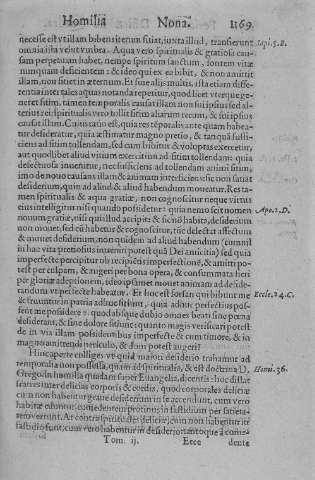 Homilia Nona. 1169.
necesse est vt illam bibens iterum sitiat, iuxta illud, transierunt Sapi. 5. B.
omnia ista velut vmbra. Aqua vero spiritualis & gratiosa cau-
sam perpetuam habet, nempe spiritum sanctum, fontem vitæ
nunquam deficientem: & ideo qui ex ea bibit, & non amittit
illam, non sitiet in æternum. Et sunt aliis multis, ista etiam differentia
inter tales aquas notanda reperitur, quod licet vtreque po-
neret sitim, tamen temporalis causat illam non sui ipsius sed al-
terius rei: spiritualis vero tollit sitim aliarum rerum, & sui ipsius
causat illam. Cuius ratio est, quia res temporalis ante quam habea-
tur desideratur, quia æstimatur magno pretio, & tanquã suffi-
ciens ad sitim tollendam, sed cum bibitur & voluptas exercetur,
aut quodlibet aliud vitium exercitium ad sitim tollendam: quia
defectuosa inuenitur, nec sufficiens ad tollendam animi sitim,
imo de nouo causans illam & animam
desiderium, quin ad aliud & aliud habendum moueatur. Res ta-
men spiritualis & aqua gratiæ, non cognoscitur neque virtus
eius intelligitur nisi quando possidetur: quia nemo scit nomen Apo. 2. D.
nouum gratiæ, nisi qui illud accipit & sic nõ habita, desiderium
non mouet, sed cũ habetur & cognoscitur, tũc delectat affectum
& mouet desiderium, non quidem ad aliud habendum (cum nil
in hac vita pretiosius inueniri potest quã Dei amicitia) sed quia
imperfecte percipitur ob recipientis imperfectionẽ, & amitti po-
test per culpam, & augeri per bona opera, & consummata heri
per gloriæ adeptionem, ideo ipsamet mouet animam ad deside-
randum vt perfecte habeatur. Et hoc est forsan qui bibunt me Eccle. 24. C.
& fruuntur in patria adhuc sitiunt, quia adhuc perfectius pos-
sent me possidere: quod absque dubio omnes beati sine pœna
desiderant, & sine dolore sitiunt: quanto magis verificari potest
de in via illam possidentibus imperfecte & cum timore, & in
magno amittendi periculo, & dum potest augeri?
Hinc aperte colliges vt quid maiori desiderio trahamur ad
temporalia non possessa, quam ad spiritualia, & est doctrina D. Homi. 36.
Gregorii in homilia quadam super Euangelia, dicentis: hoc distat
fratres inter delicias corporis & cordis, quod corporales deliciæ
cum non habentur graue desiderium in se accendunt, cum vero
habitæ eduntur, comedentem protinus in fastidium per satieta-
tem vertunt. At contra spirituales deliciæ, cum non habentur in
fastidio sunt, cum vero habentur in desiderio, tantoque à come-
Tom. ij. Eeee dente